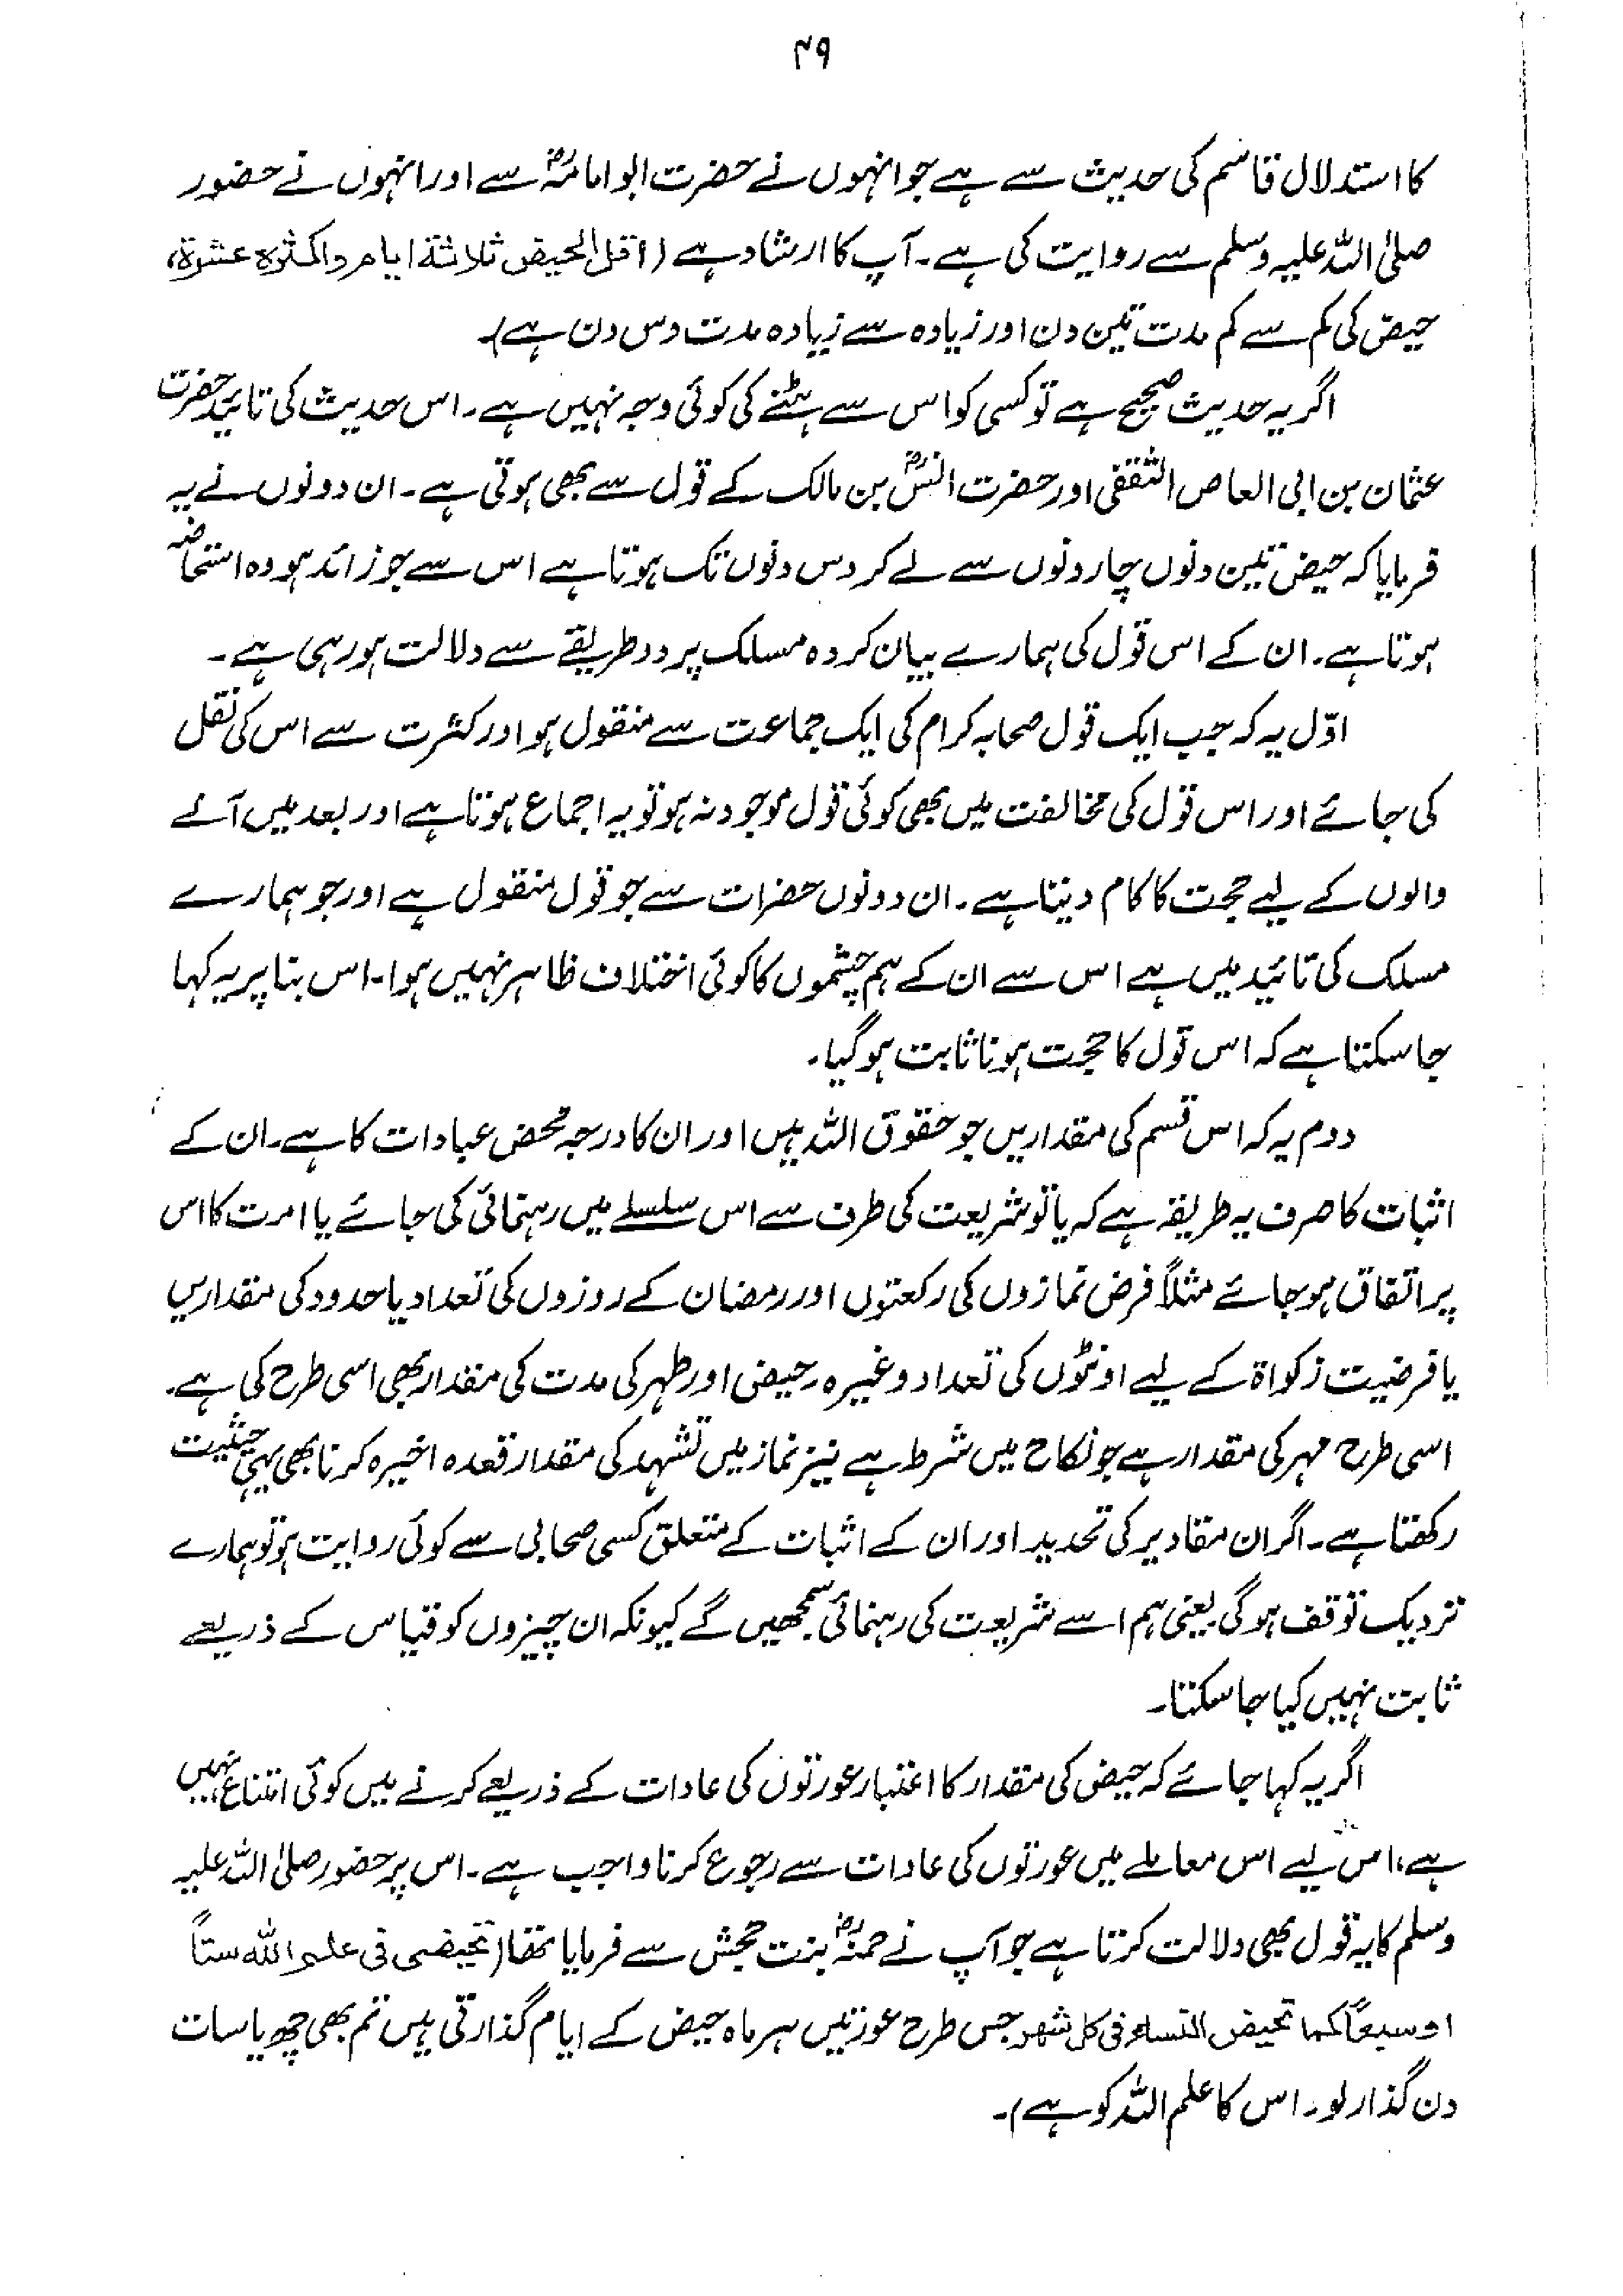 ۴۹
کا استدلال قاسم کی حدیث سے ہے جو انہوں نے حضرت ابوامامہؓ سے اور انہوں نے حضور
صلی اللہ علیہ وسلم سے روایت کی ہے۔ آپ کا ارشاد ہے (اقل الحیض ثلاثة ایام واکثرہ عشرة،
حیض کی کم سے کم مدت تین دن اور زیادہ سے زیادہ مدت دس دن ہے)۔
اگر یہ حدیث صحیح ہے تو کسی کو اس سے ہٹنے کی کوئی وجہ نہیں ہے۔ اس حدیث کی تائید حضرت
عثمان بن ابی العاص الثقفی اور حضرت انسؓ بن مالک کے قول سے بھی ہوتی ہے۔ ان دونوں نے یہ
فرمایا کہ حیض تین دنوں چار دنوں سے لے کر دس دنوں تک ہوتا ہے اس سے جو زائد ہو وہ استحاضہ
ہوتا ہے۔ ان کے اس قول کی ہمارے بیان کردہ مسلک پر دو طریقے سے دلالت ہو رہی ہے۔
اوّل یہ کہ جب ایک قول صحابہ کرام کی ایک جماعت سے منقول ہو اور کثرت سے اس کی نقل
کی جائے اور اس قول کی مخالفت میں بھی کوئی قول موجود نہ ہو تو یہ اجماع ہوتا ہے اور بعد میں آنے
والوں کے لیے حجت کا کام دیتا ہے۔ ان دونوں حضرات سے جو قول منقول ہے اور جو ہمارے
مسلک کی تائید میں ہے اس سے ان کے ہم چشموں کا کوئی اختلاف ظاہر نہیں ہوا۔ اس بنا پر یہ کہا
جا سکتا ہے کہ اس قول کا حجت ہونا ثابت ہو گیا۔
دوم یہ کہ اس قسم کی مقداریں جو حقوق اللہ ہیں اور ان کا درجہ محض عبادات کا ہے۔ ان کے
اثبات کا صرف یہ طریقہ ہے کہ یا تو شریعت کی طرف سے اس سلسلے میں رہنمائی کی جائے یا امت کا اس
پر اتفاق ہو جائے مثلاً فرض نمازوں کی رکعتوں اور رمضان کے روزوں کی تعداد یا حدود کی مقداریں
یا فرضیت زکواۃ کے لیے اونٹوں کی تعداد وغیرہ۔ حیض اور طہر کی مدت کی مقدار بھی اسی طرح کی ہے۔
اسی طرح مہر کی مقدار ہے جو نکاح میں شرط ہے نیز نماز میں تشہد کی مقدار قعدہ اخیرہ کرنا بھی یہی حیثیت
رکھتا ہے۔ اگر ان مقادیر کی تحدید اور ان کے اثبات کے متعلق کسی صحابی سے کوئی روایت ہو تو ہمارے
نزدیک توقف ہو گی یعنی ہم اسے شریعت کی رہنمائی سمجھیں گے کیونکہ ان چیزوں کو قیاس کے ذریعے
ثابت نہیں کیا جا سکتا۔
اگر یہ کہا جائے کہ حیض کی مقدار کا اعتبار عورتوں کی عادات کے ذریعے کرنے میں کوئی امتناع نہیں
ہے، اس لیے اس معاملے میں عورتوں کی عادات سے رجوع کرنا واجب ہے۔ اس پر حضور صلی اللہ علیہ
وسلم کا یہ قول بھی دلالت کرتا ہے جو آپ نے حمنہؓ بنت جحش سے فرمایا تھا (تحیضی فی علم اللہ ستاً
او سبعاً کما تحیض النساء فی کل شھر جس طرح عورتیں ہر ماہ حیض کے ایام گذارتی ہیں تم بھی چھ یا سات
دن گذار لو۔ اس کا علم اللہ کو ہے)۔